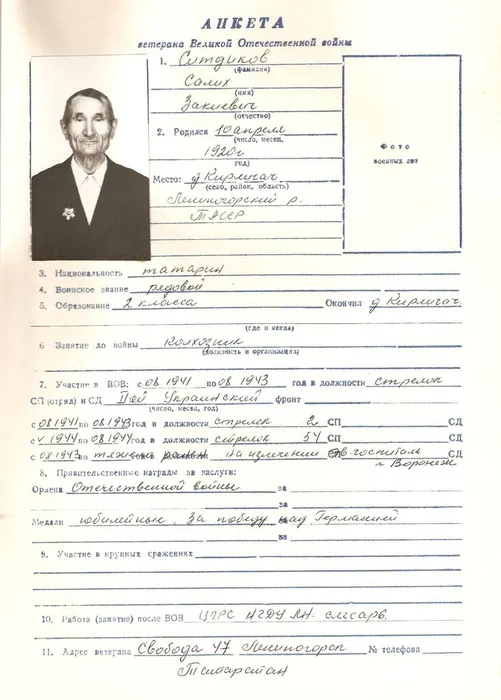 АНКЕТА
ветерана Великой Отечественной войны
1. Ситдиков
(фамилия)
Салих
(имя)
Закиевич
(отчество)
2. Родился 10 апреля
(число, месяц,
1920г
год)
Место: д Кирлигач.
(село, район, область)
Лениногорский р.
ТАССР
Фото
военных лет
3. Национальность татарин
4. Воинское звание редовой
5. Образование 2 класса Окончил д Кирлигач.
(где и когда)
6 Занятие до войны Колхозник
(должность и организация)
7. Участие в ВОВ: с 08 1941 по 08 1943 год в должности стрелок
СП (отряд) и СД II ой Украинский фронт
(число, месяц, год)
с 08 1941 по 08 1943 год в должности стрелок 2 СП СД
с V 1944 по 08 1944 год в должности стрелок 54 СП СД
с 08 1943 по тяжело ранен на излечении госпиталь СД
г Воронеж
8. Правительственные награды за заслуги:
Ордена Отечественной войны за
за
Медали юбилейные, За победу над Германией
за
9. Участие в крупных сражениях
10. Работа (занятие) после ВОВ ЦПРС НГДУ ЛН. слесарь.
11. Адрес ветерана Свобода 47 Лениногорск № телефона
Татарстан